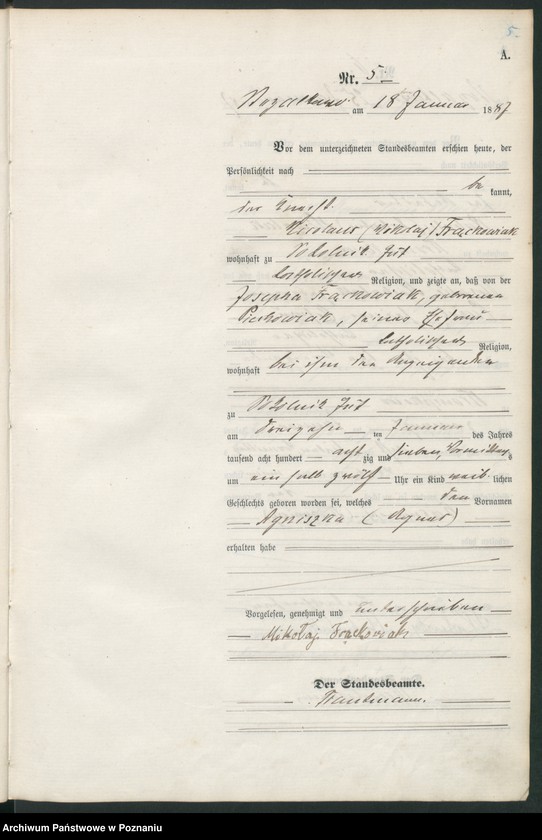 5.
A.
Nr. 5
am 18 Januar 1887
Vor dem unterzeichneten Standesbeamten erschien heute, der
Persönlichkeit nach
be kannt,
der Knecht
Nicolaus (Mikołaj) Frąckowiak
wohnhaft zu Sokolnik Gut
katholischer Religion, und zeigte an, daß von der
Josepha Frąckowiak, geborenen
Piechowiak, seiner Ehefrau
katholischer Religion,
wohnhaft bei ihm
zu Sokolnik Gut
am dreizehn ten Januar des Jahres
tausend acht hundert acht zig und sieben, Vormittags
um ein halb zwölf Uhr ein Kind weib lichen
Geschlechts geboren worden sei, welches den Vornamen
Agniszka (Agnes)
erhalten habe
Vorgelesen, genehmigt und unterschrieben
Mikołaj Frąckowiak
Der Standesbeamte.
Archiwum Państwowe w Poznaniu